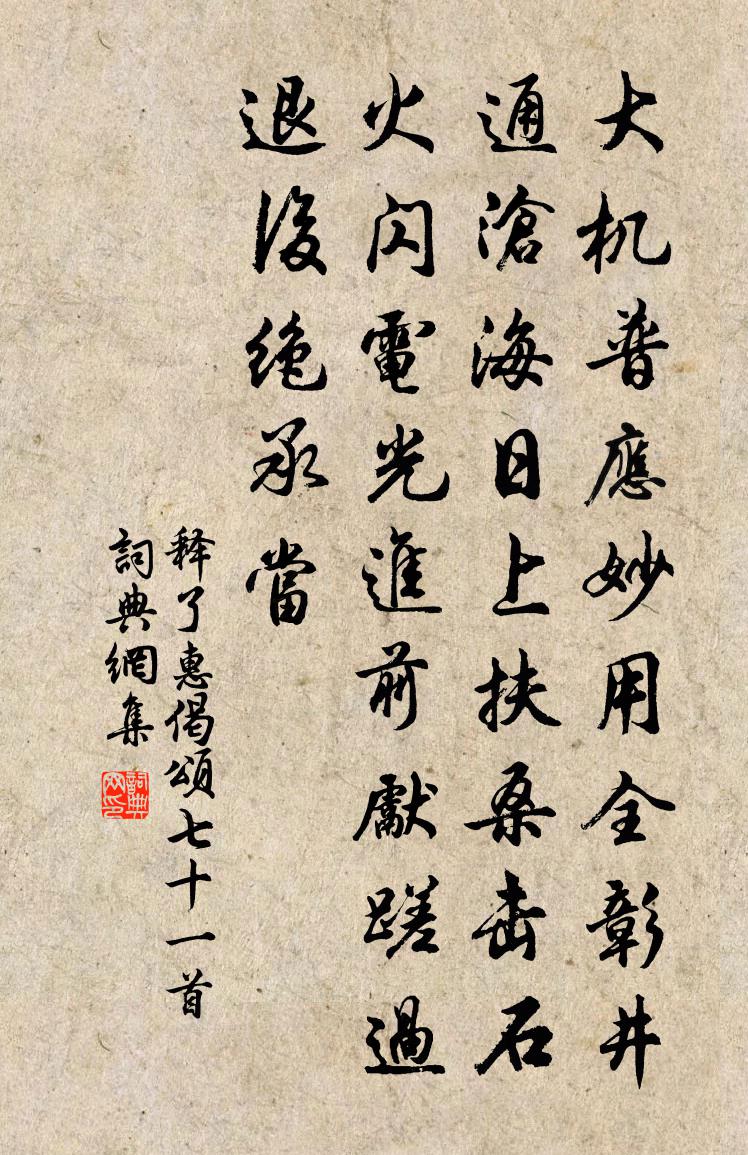 大机普應妙用全彰井
通滄海日上扶桑击石
火閃電光進前獻蹉過
退後绝承當
释了惠偈頌七十一首
詞典網集
詞典网印